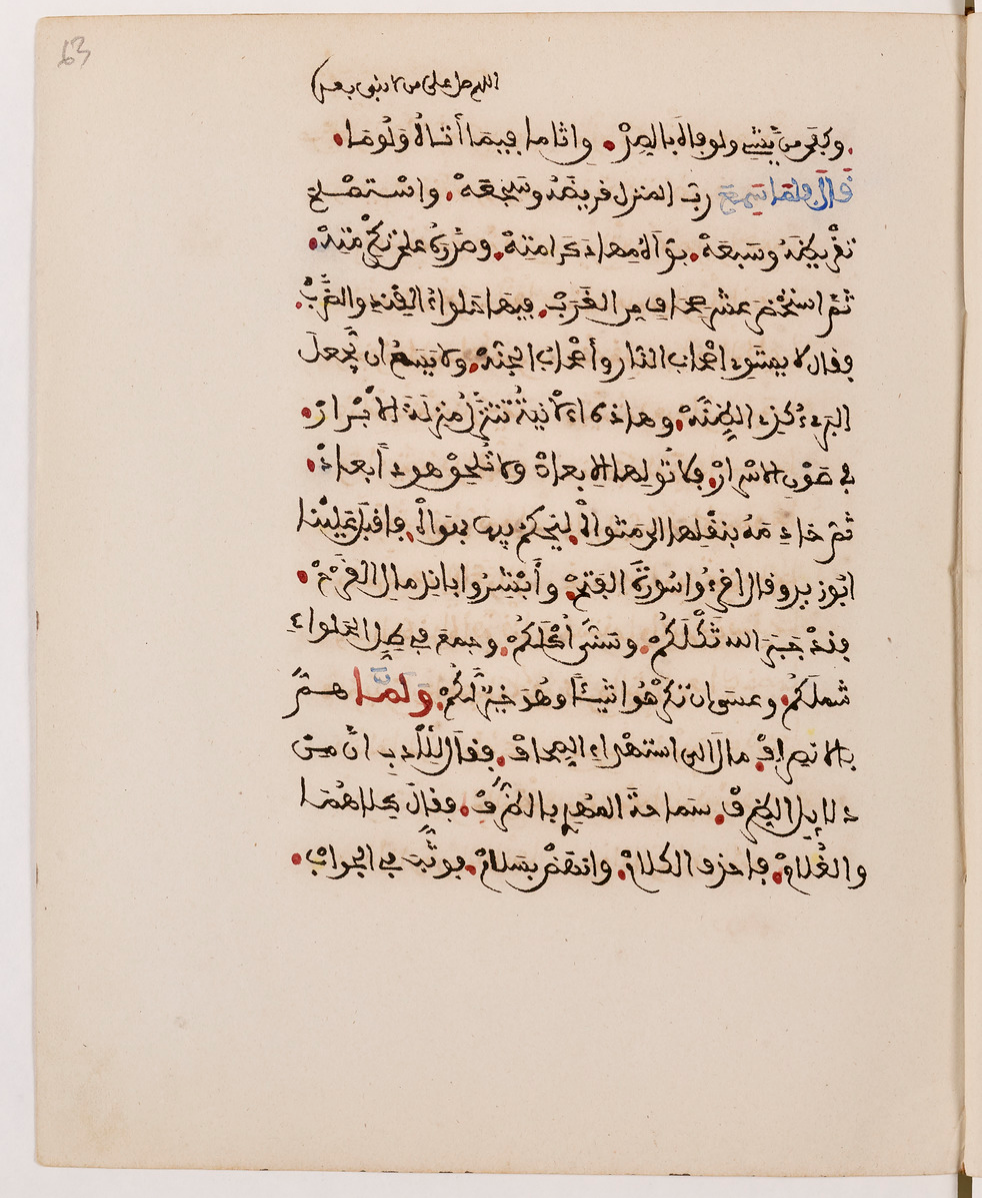 63
اللهم صل على من لا نبي بعده
وكفى من يفشي ولو فاه بالصدق. واثاما فيما أتاه ولوما.
قال فلما سمع رب المنزل قريضه وسجعه. واستملح
تقريظه وسبعه. بوأه مهاد كرامته. وصدره على تكرمته.
ثم استحضر عشر صحاف من الغرب. فيها حلواء القند والضرب.
وقال لا يستوي اصحاب النار وأصحاب الجنة. ولا يسع ان يجعل
البريء كذي الظنة. وهاذه الانية تتنزل منزلة الابرار.
في صون الاسرار. فلا تولها الابعاد ولا تلحق هودا بعاد.
ثم خادمه بنقلها الى مثواه. ليحكم فيها بهواه. فاقبل علينا
ابو زيد وقال اقرءوا سورة الفتح. وأبشروا باندمال القرح.
فقد جبر الله ثكلكم. وسنى أكلكم. وجمع في ظل الحلواء
شملكم. وعسى ان تكرهوا شيئا وهو خير لكم. ولما هم
بالانصراف. مال الى استهداء الصحاف. فقال للأدب ان من
دلايل الظرف. سماحة المهدي بالظرف. فقال كلاهما
والغلام. فاحذف الكلام. وانهض بسلام. فوثب في الجواب.